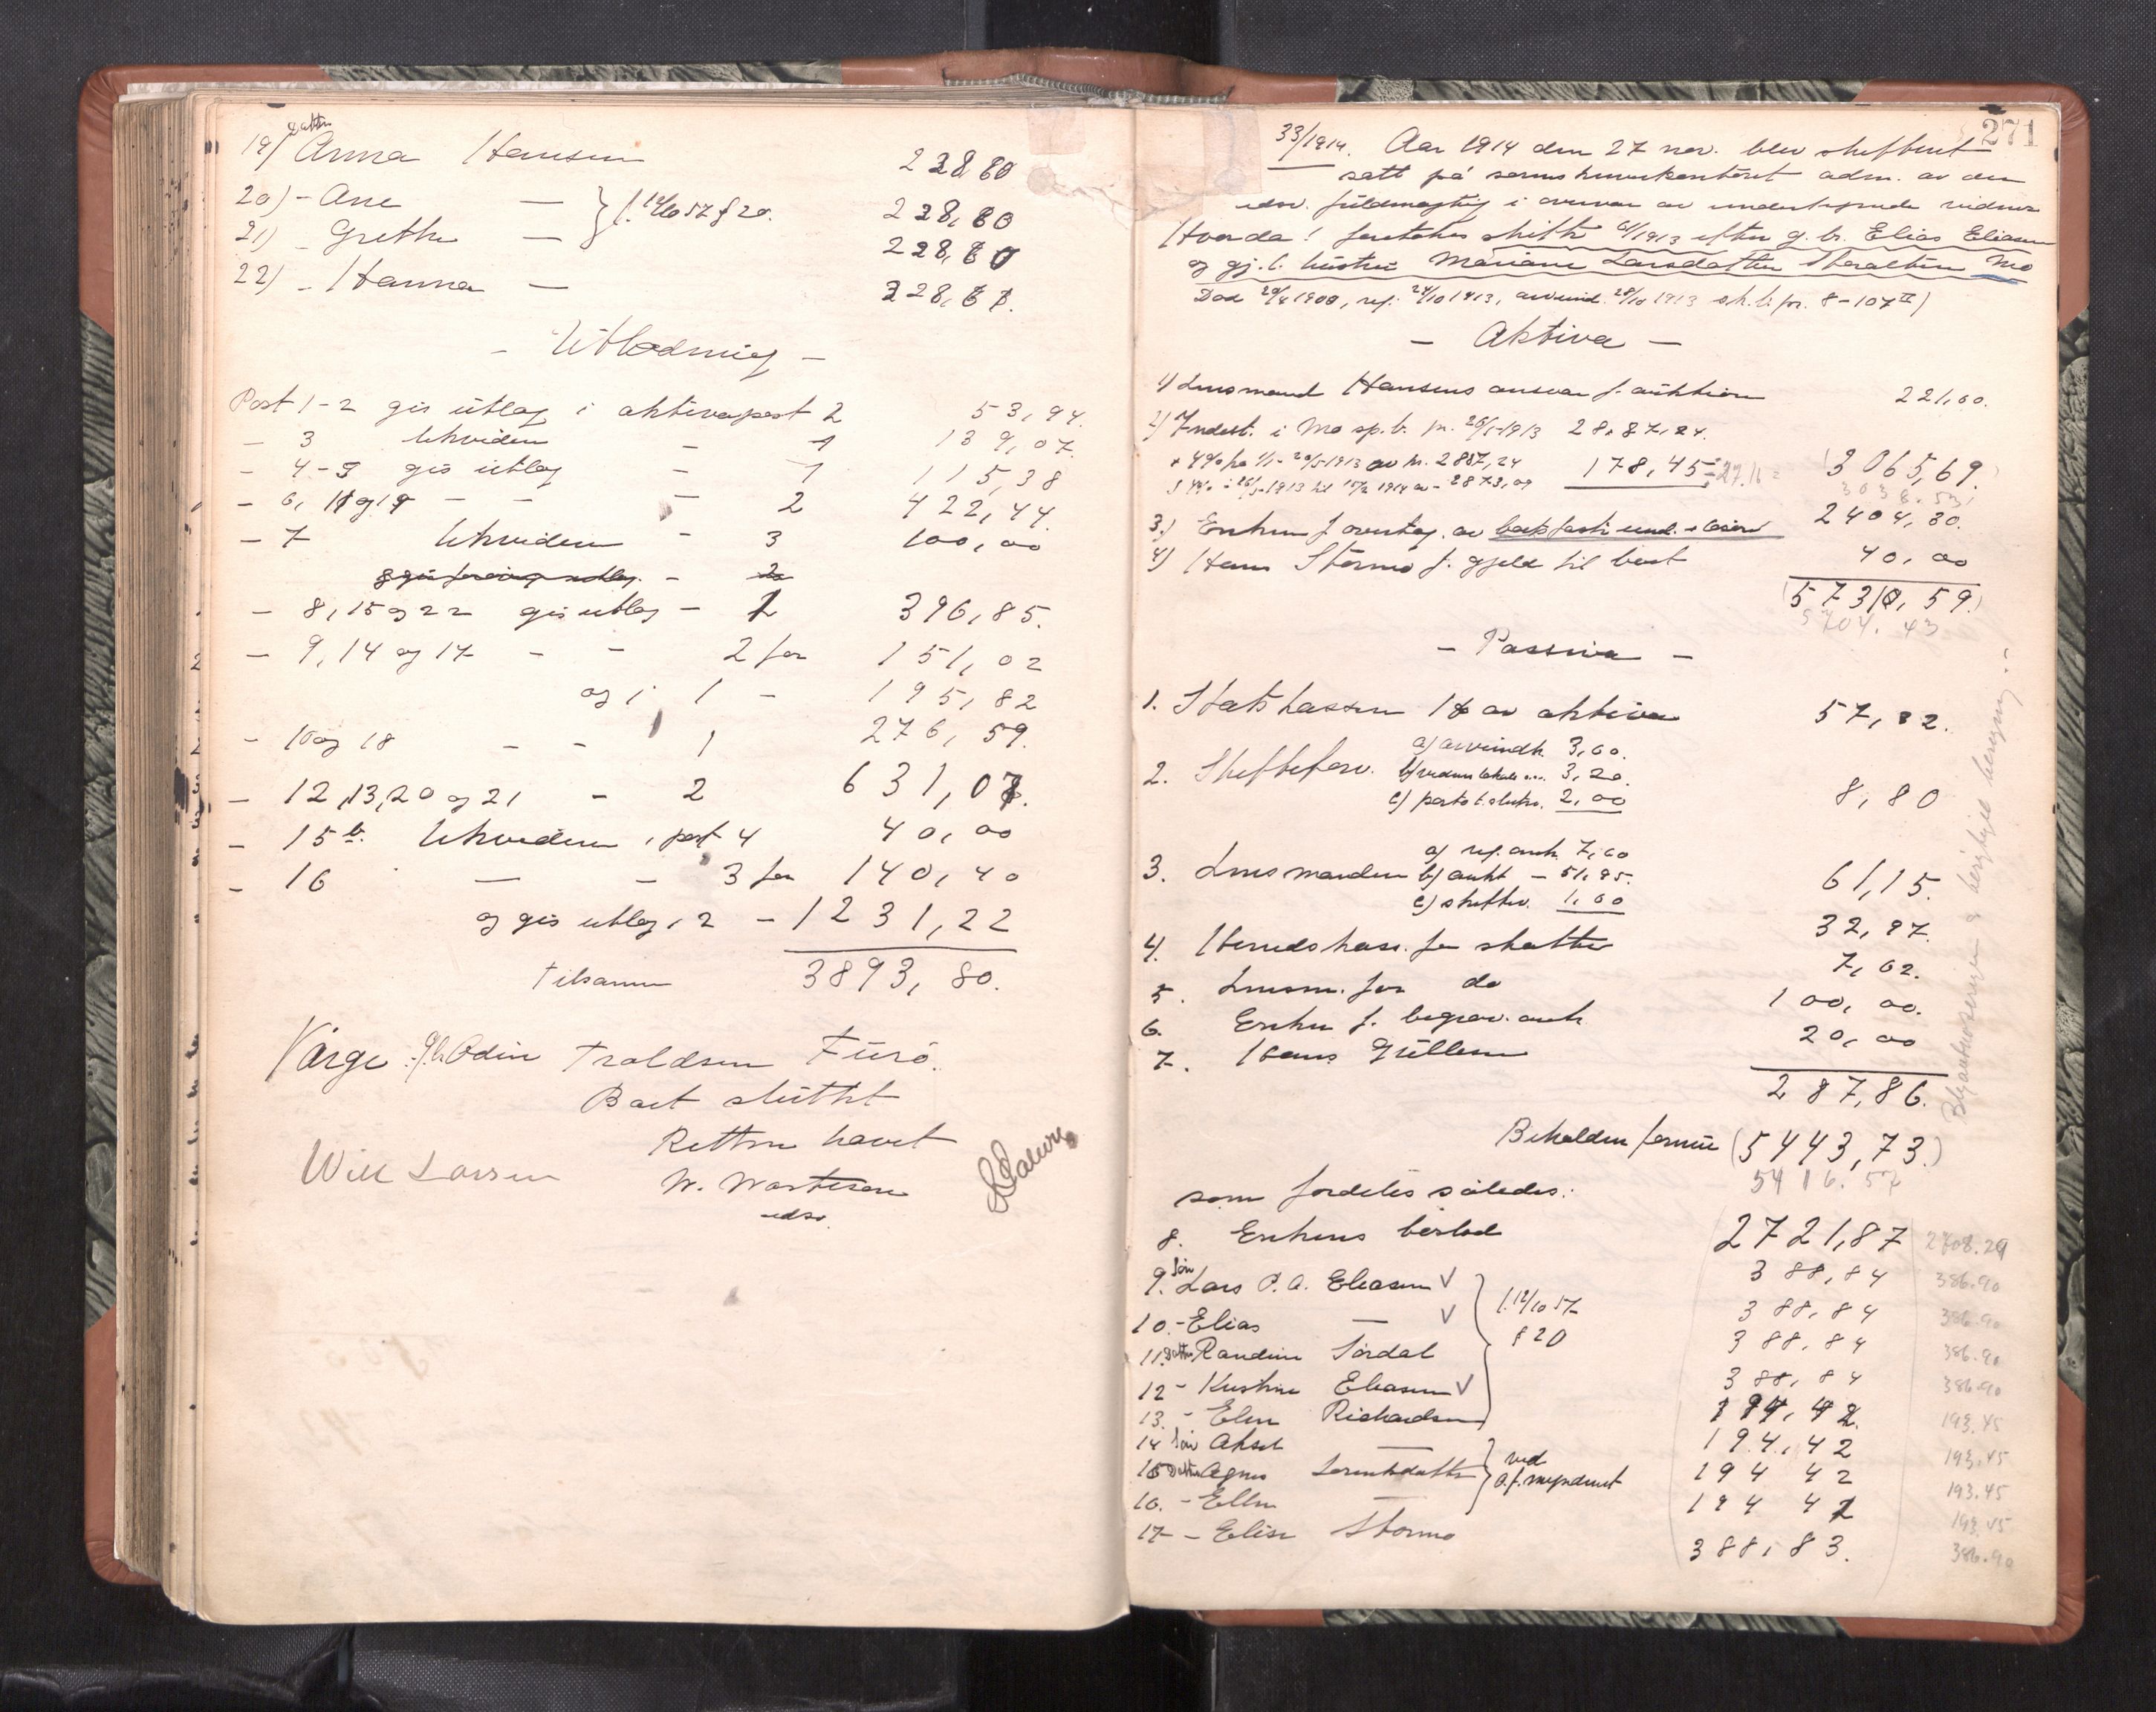 Datter
19) Anna Hansen 228,60
20) - Ane — } f. 14/10 57 § 20. 228,60
21) - Grethe — 228,60
22) - Hanna — 228,61.
- Utlodning -
Post 1-2 gis utlæg i aktivapost 2 53,94.
- 3 likvideres - 1 139,07.
- 4-5 gis utlæg - 1 115,38
- 6, 11 og 19 - - - 2 422,44.
- 7 likvideres - 3 100,00
- 8, 15 og 22 gis utlæg - 1 396,85.
- 9, 14 og 17 - - 2 for 151,02
og i 1 - 195,82
- 10 og 18 - - 1 276,59.
- 12, 13, 20 og 21 - 2 631,07.
- 15 b. likvideres i post 4 40,00
- 16 — - 3 for 140,40
og gis utlæg i 2 - 1231,22
Tilsammen 3893,80.
Værge: Odin Troldsen Furø.
Boet sluttet
Retten hævet
Will Larssen
W. Mortensen
edsv.
271
33/1914. Aar 1914 den 27 nov. blev skifteret
satt på sorenskriverkontoret adm. av den
edsv. fuldmægtig i overvær av undertegnede vidner
Hvorda! foretokes skifte 61/1913 efter g. br. Elias Eliasen
og gj. l. hustru Mariane Larsdatter Storalteren Mo
Død 29/4 1908, reg. 24/10 1913, arveind. 28/10 1913 sk. b. pr. 8-107 II)
- Aktiva -
1) Lensmand Hansens ansvar f. auktion 221,60.
2) Indest. i Mo sp.b. pr. 26/5-1913 2887,24.
+ 4% fra 1/1-26/5-1913 av kr. 2887,24
178,45 27.16 = (3065,69.)
3038.53
3.) Enken f. overtag. av boets faste eiend. o. løsøre 2404,30.
4) Hans Stormo f. gjeld til boet 40,00
(5731,59.)
5704.43
- Passiva -
1. Statskassen 1% av aktiva 57,32.
2. Skifteforv. a) arveindk. 3,60.
b) vidner lokale m.m. 3,20.
c) porto t. slutn. 2,00
8,80
3. Lensmanden a) reg. auk. 7,60
b) aukt — 51,95.
c) skiftev. 1,60
61,15.
4. Herredskass. for skatter 32,97.
5. Lensm. for do 7,62.
6. Enken f. begrav. omk. 100,00.
7. Hans Gullesen 20,00
287,86.
Beholden formue (5443,73.)
5416.57
som fordeles således:
8. Enkens boslod 2721,87 2708.29
9. Søn Lars P. A. Eliasen V 388,84 386.90
10. - Elias — V 388,84 386.90
f. 14/10 57
§ 20
11. Datter Randine Jordal 388,84 386.90
12 - Kristine Eliasen V 388,84 386.90
13. - Elen Richardsen 194,42 193.45
14 Søn Aksel — 194,42 193.45
15 Datter Agnes Lorentsdatter 194 42 193.45
ved
o.f. myndiret
16. - Ellen — 194 42 193.45
17 - Elise Stormo 388,83. 386.90